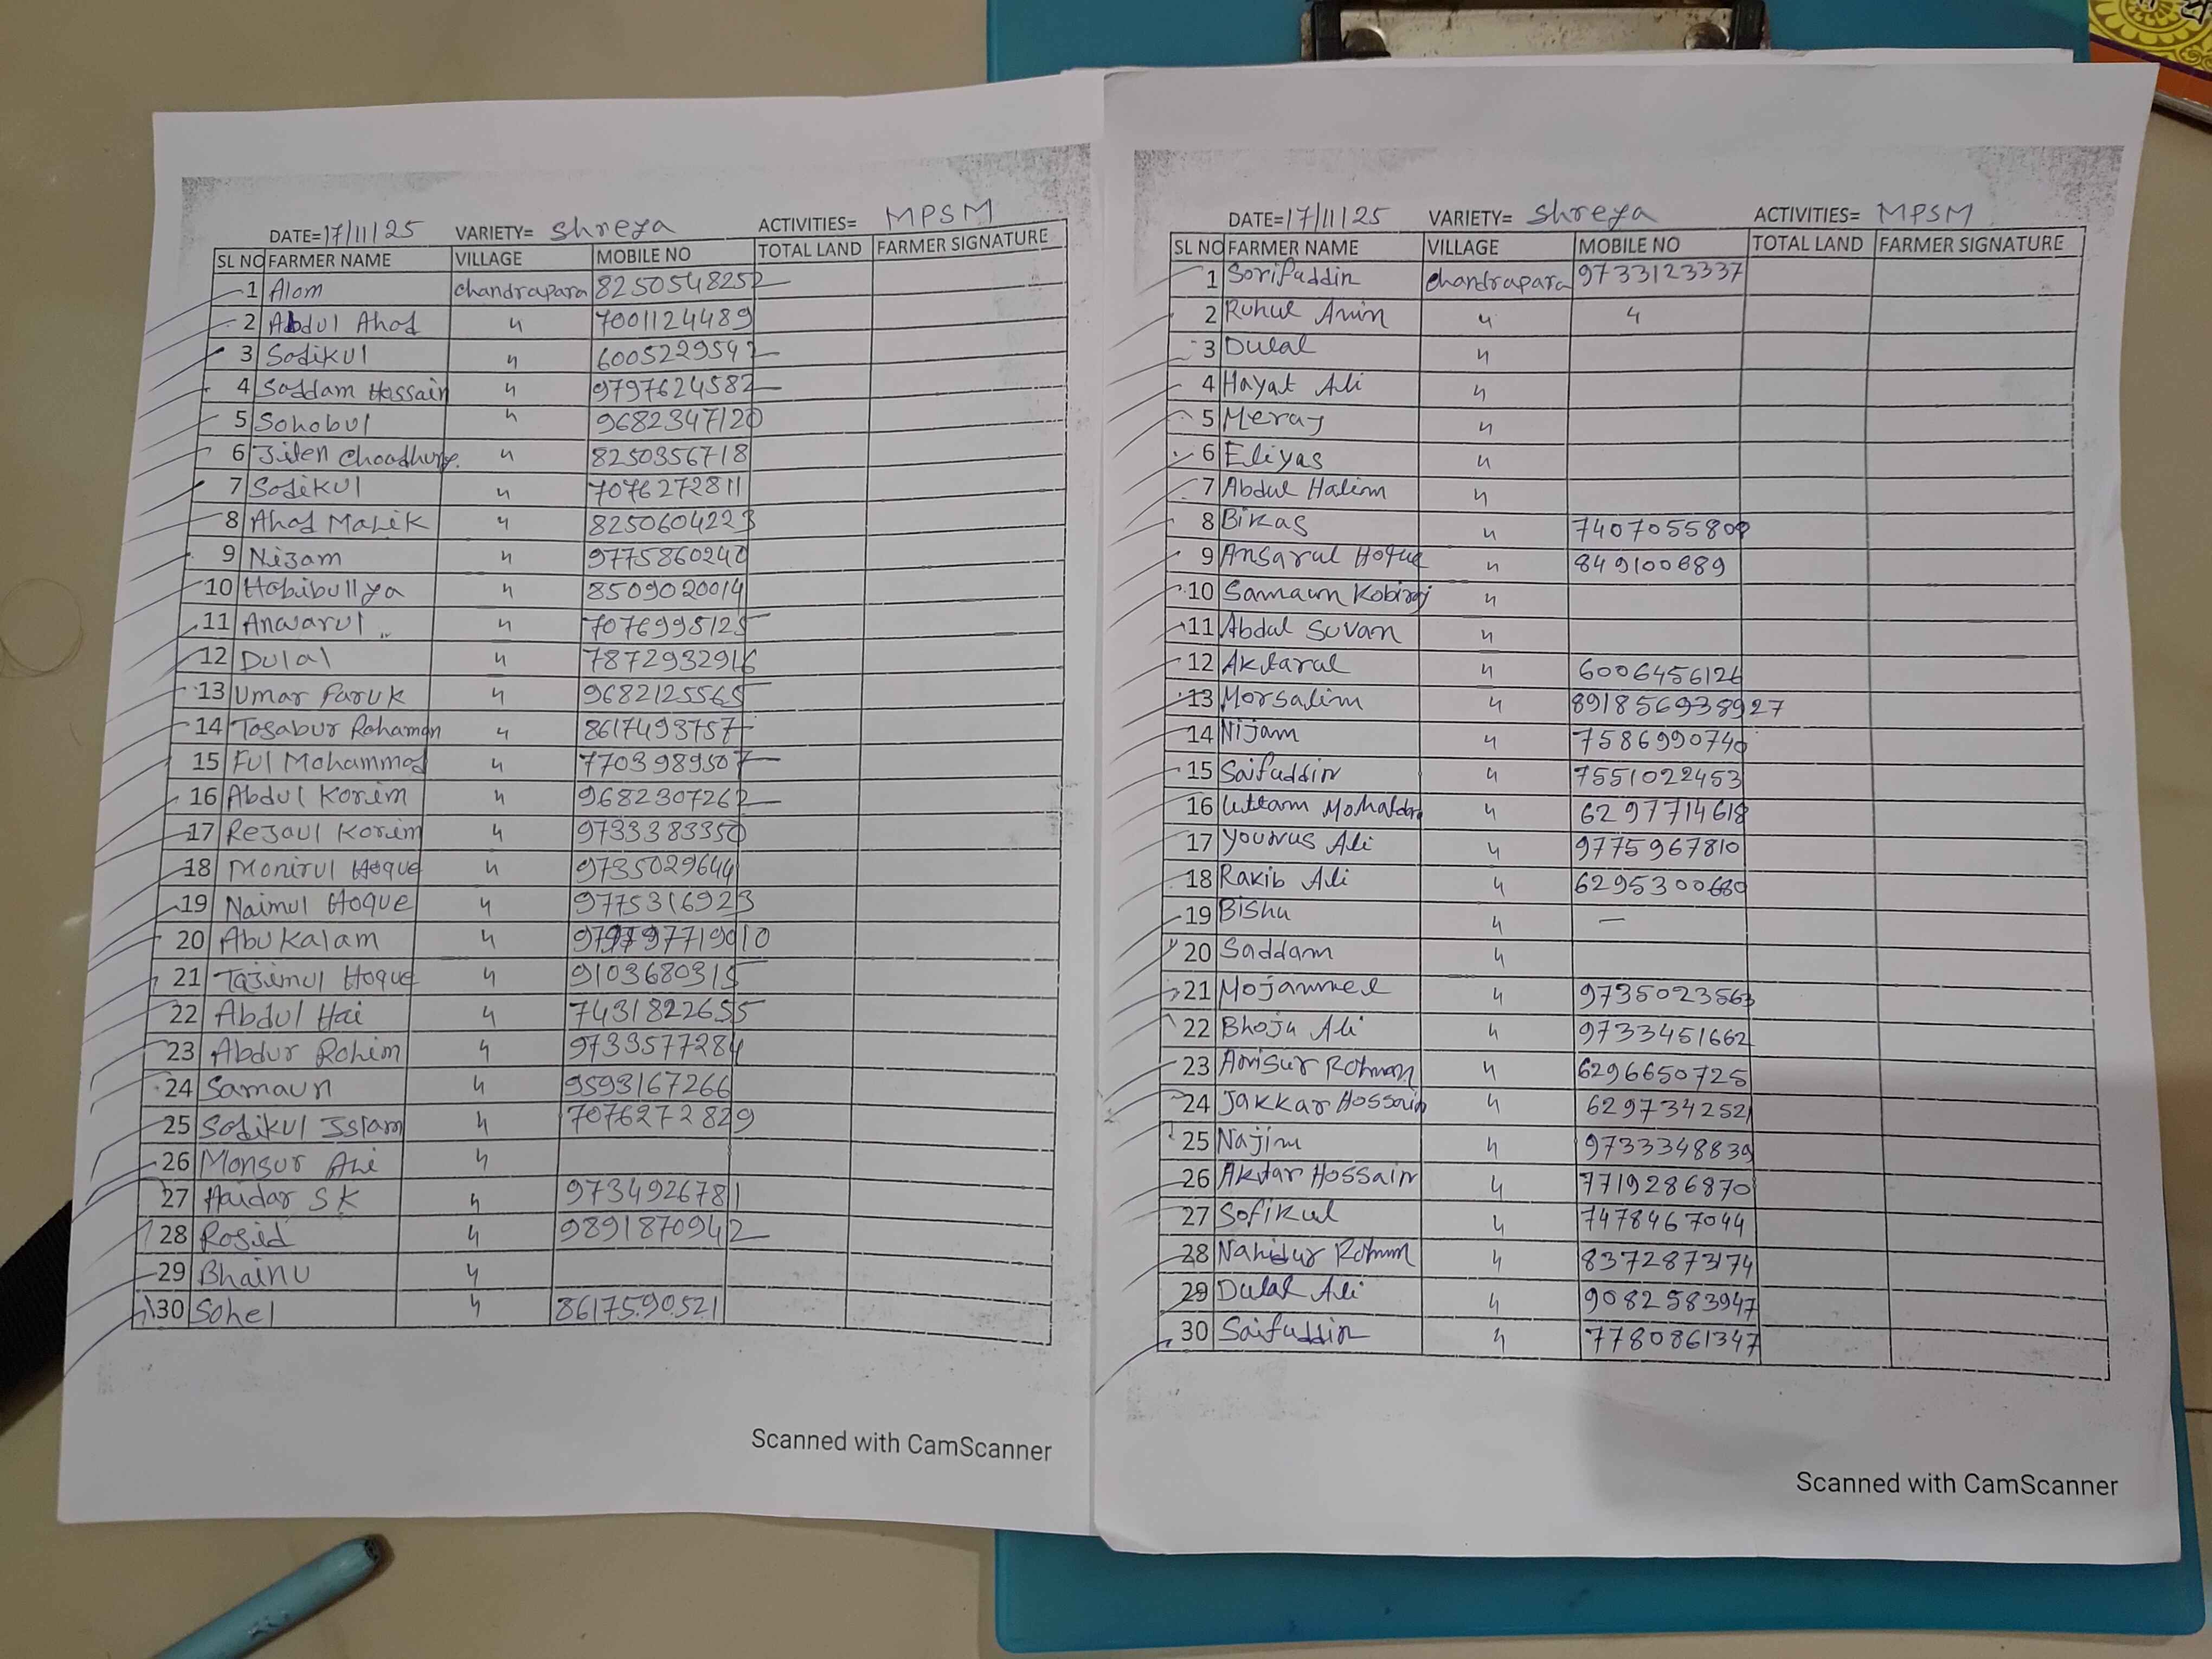 DATE=17/11/25 VARIETY= Shreya ACTIVITIES= MPSM
SL NO FARMER NAME VILLAGE MOBILE NO TOTAL LAND FARMER SIGNATURE
1 Alom Chandrapara 8250548252
2 Abdul Ahad 〃 7001124489
3 Sadikul 〃 6005229542
4 Saddam Hossain 〃 9797624582
5 Sohobul 〃 9682347120
6 Jiten Choadhury. 〃 8250356718
7 Sadikul 〃 7076272811
8 Ahad Malik 〃 8250604223
9 Nizam 〃 9775860240
10 Habibullya 〃 8509020014
11 Anwarul 〃 7076998125
12 Dulal 〃 7872932916
13 Umar Faruk 〃 9682125565
14 Tosabur Rohaman 〃 8617493757
15 Ful Mohammad 〃 7703989507
16 Abdul Korim 〃 9682307262
17 Rejaul Korim 〃 9733383350
18 Monirul Hoque 〃 9735029644
19 Naimul Hoque 〃 9775316923
20 Abu Kalam 〃
21 Tajimul Hoque 〃 9103680315
22 Abdul Hai 〃 7431822655
23 Abdur Rohim 〃 9733577284
24 Samaun 〃 9593167266
25 Sadikul Islam 〃 7076272829
26 Monsur Ali 〃
27 Haidar SK 〃 9734926781
28 Rosid 〃 9891870942
29 Bhainu 〃
30 Sohel 〃 8617590521
Scanned with CamScanner
DATE=17/11/25 VARIETY= Shreya ACTIVITIES= MPSM
SL NO FARMER NAME VILLAGE MOBILE NO TOTAL LAND FARMER SIGNATURE
1 Sorifuddin Chandrapara 9733123337
2 Ruhul Amin 〃 〃
3 Dulal 〃
4 Hayat Ali 〃
5 Meraj 〃
6 Eliyas 〃
7 Abdul Halim 〃
8 Bikas 〃
9 Ansarul Hoque 〃 849100689
10 Samaun Kobiraj 〃
11 Abdul Suvan 〃
12 Aktarul 〃 6006456126
13 Morsalim 〃 891856938927
14 Nijam 〃 7586990740
15 Saifuddin 〃 7551022453
16 Uttam 〃 6297714618
17 Younus Ali 〃 9775967810
18 Rakib Ali 〃 6295300680
19 Bishu 〃 —
20 Saddam 〃
21 Mojammel 〃 9735023563
22 Bhoju Ali 〃 9733451662
23 Anisur Rohman 〃 6296650725
24 Jakkar Hossain 〃 6297342521
25 Najim 〃 9733348839
26 Aktar Hossain 〃 7719286870
27 Sofikul 〃 7478467044
28 Nahidur Rohman 〃 8372873174
29 Dulal Ali 〃 9082583947
30 Saifuddin 〃 7780861347
Scanned with CamScanner